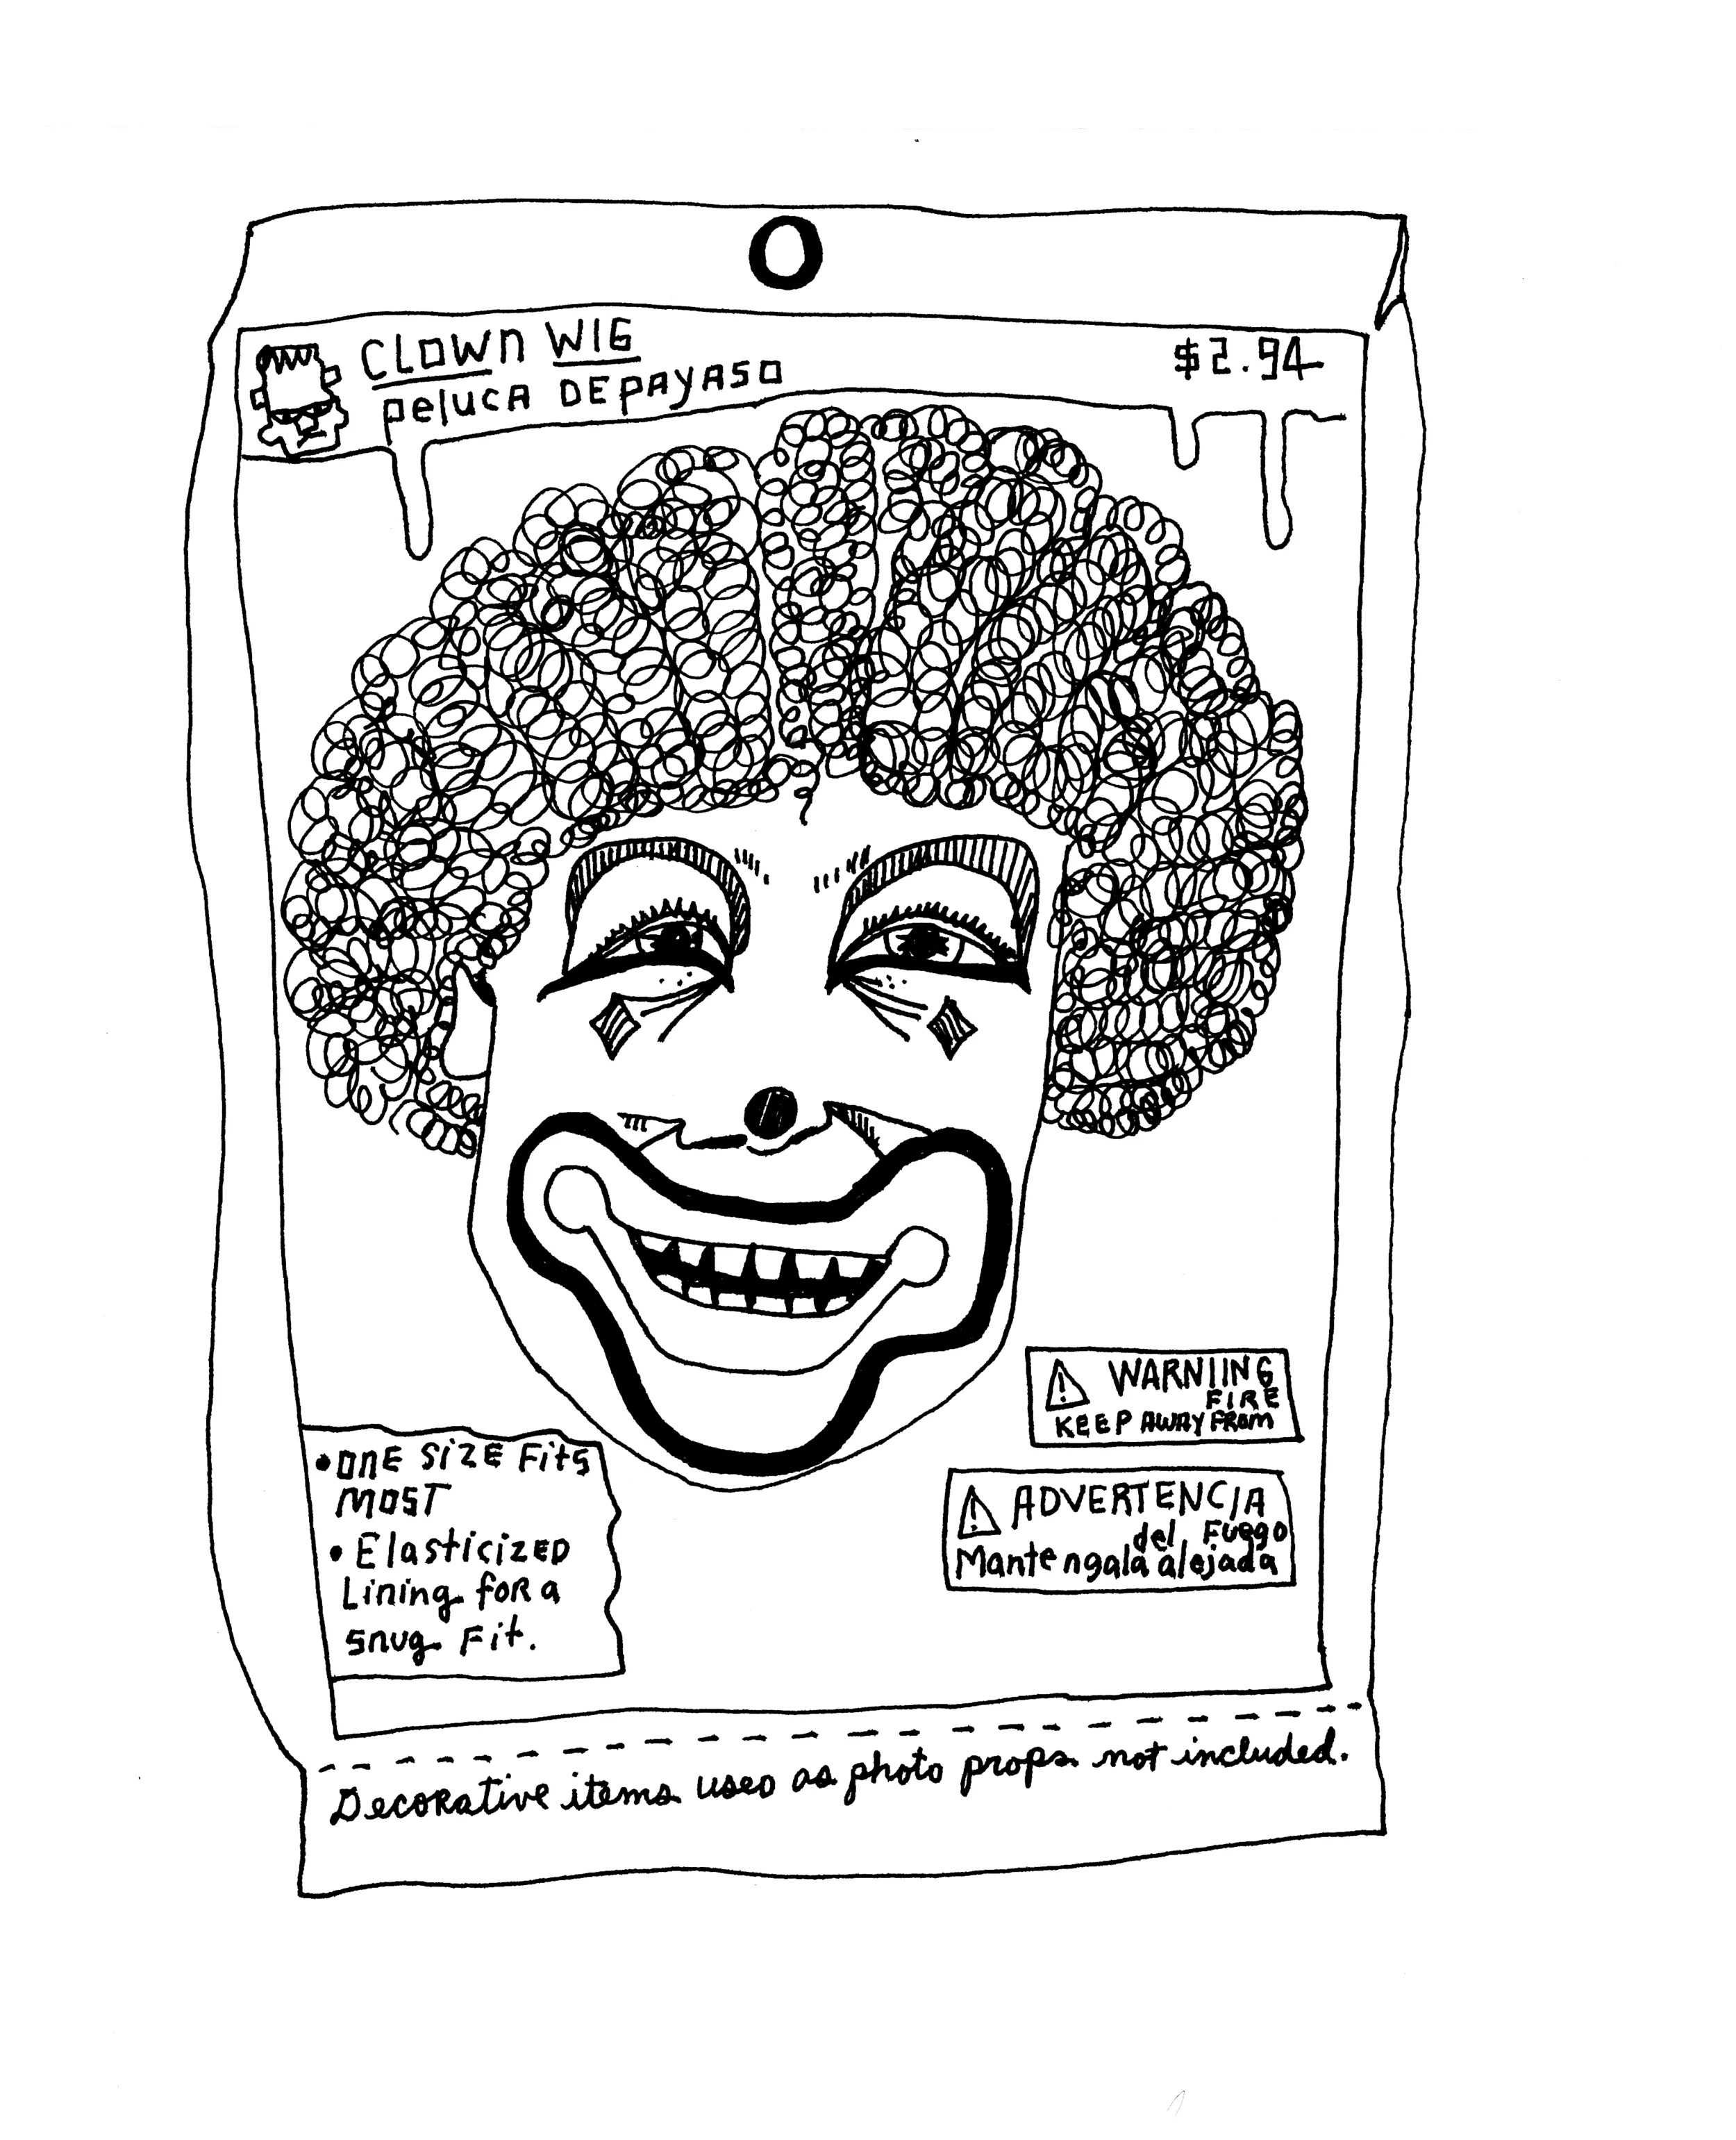 CLOWN WIG
peluca DEPAYASO
$2.94
WARNIING
FIRE
KEEP AWAY FROM
ADVERTENCIA
del Fuego
Mantengala alejada
• ONE SIZE FitS
MOST
• ElasticizED
Lining foR a
snug Fit.
Decorative items used as photo props not included.